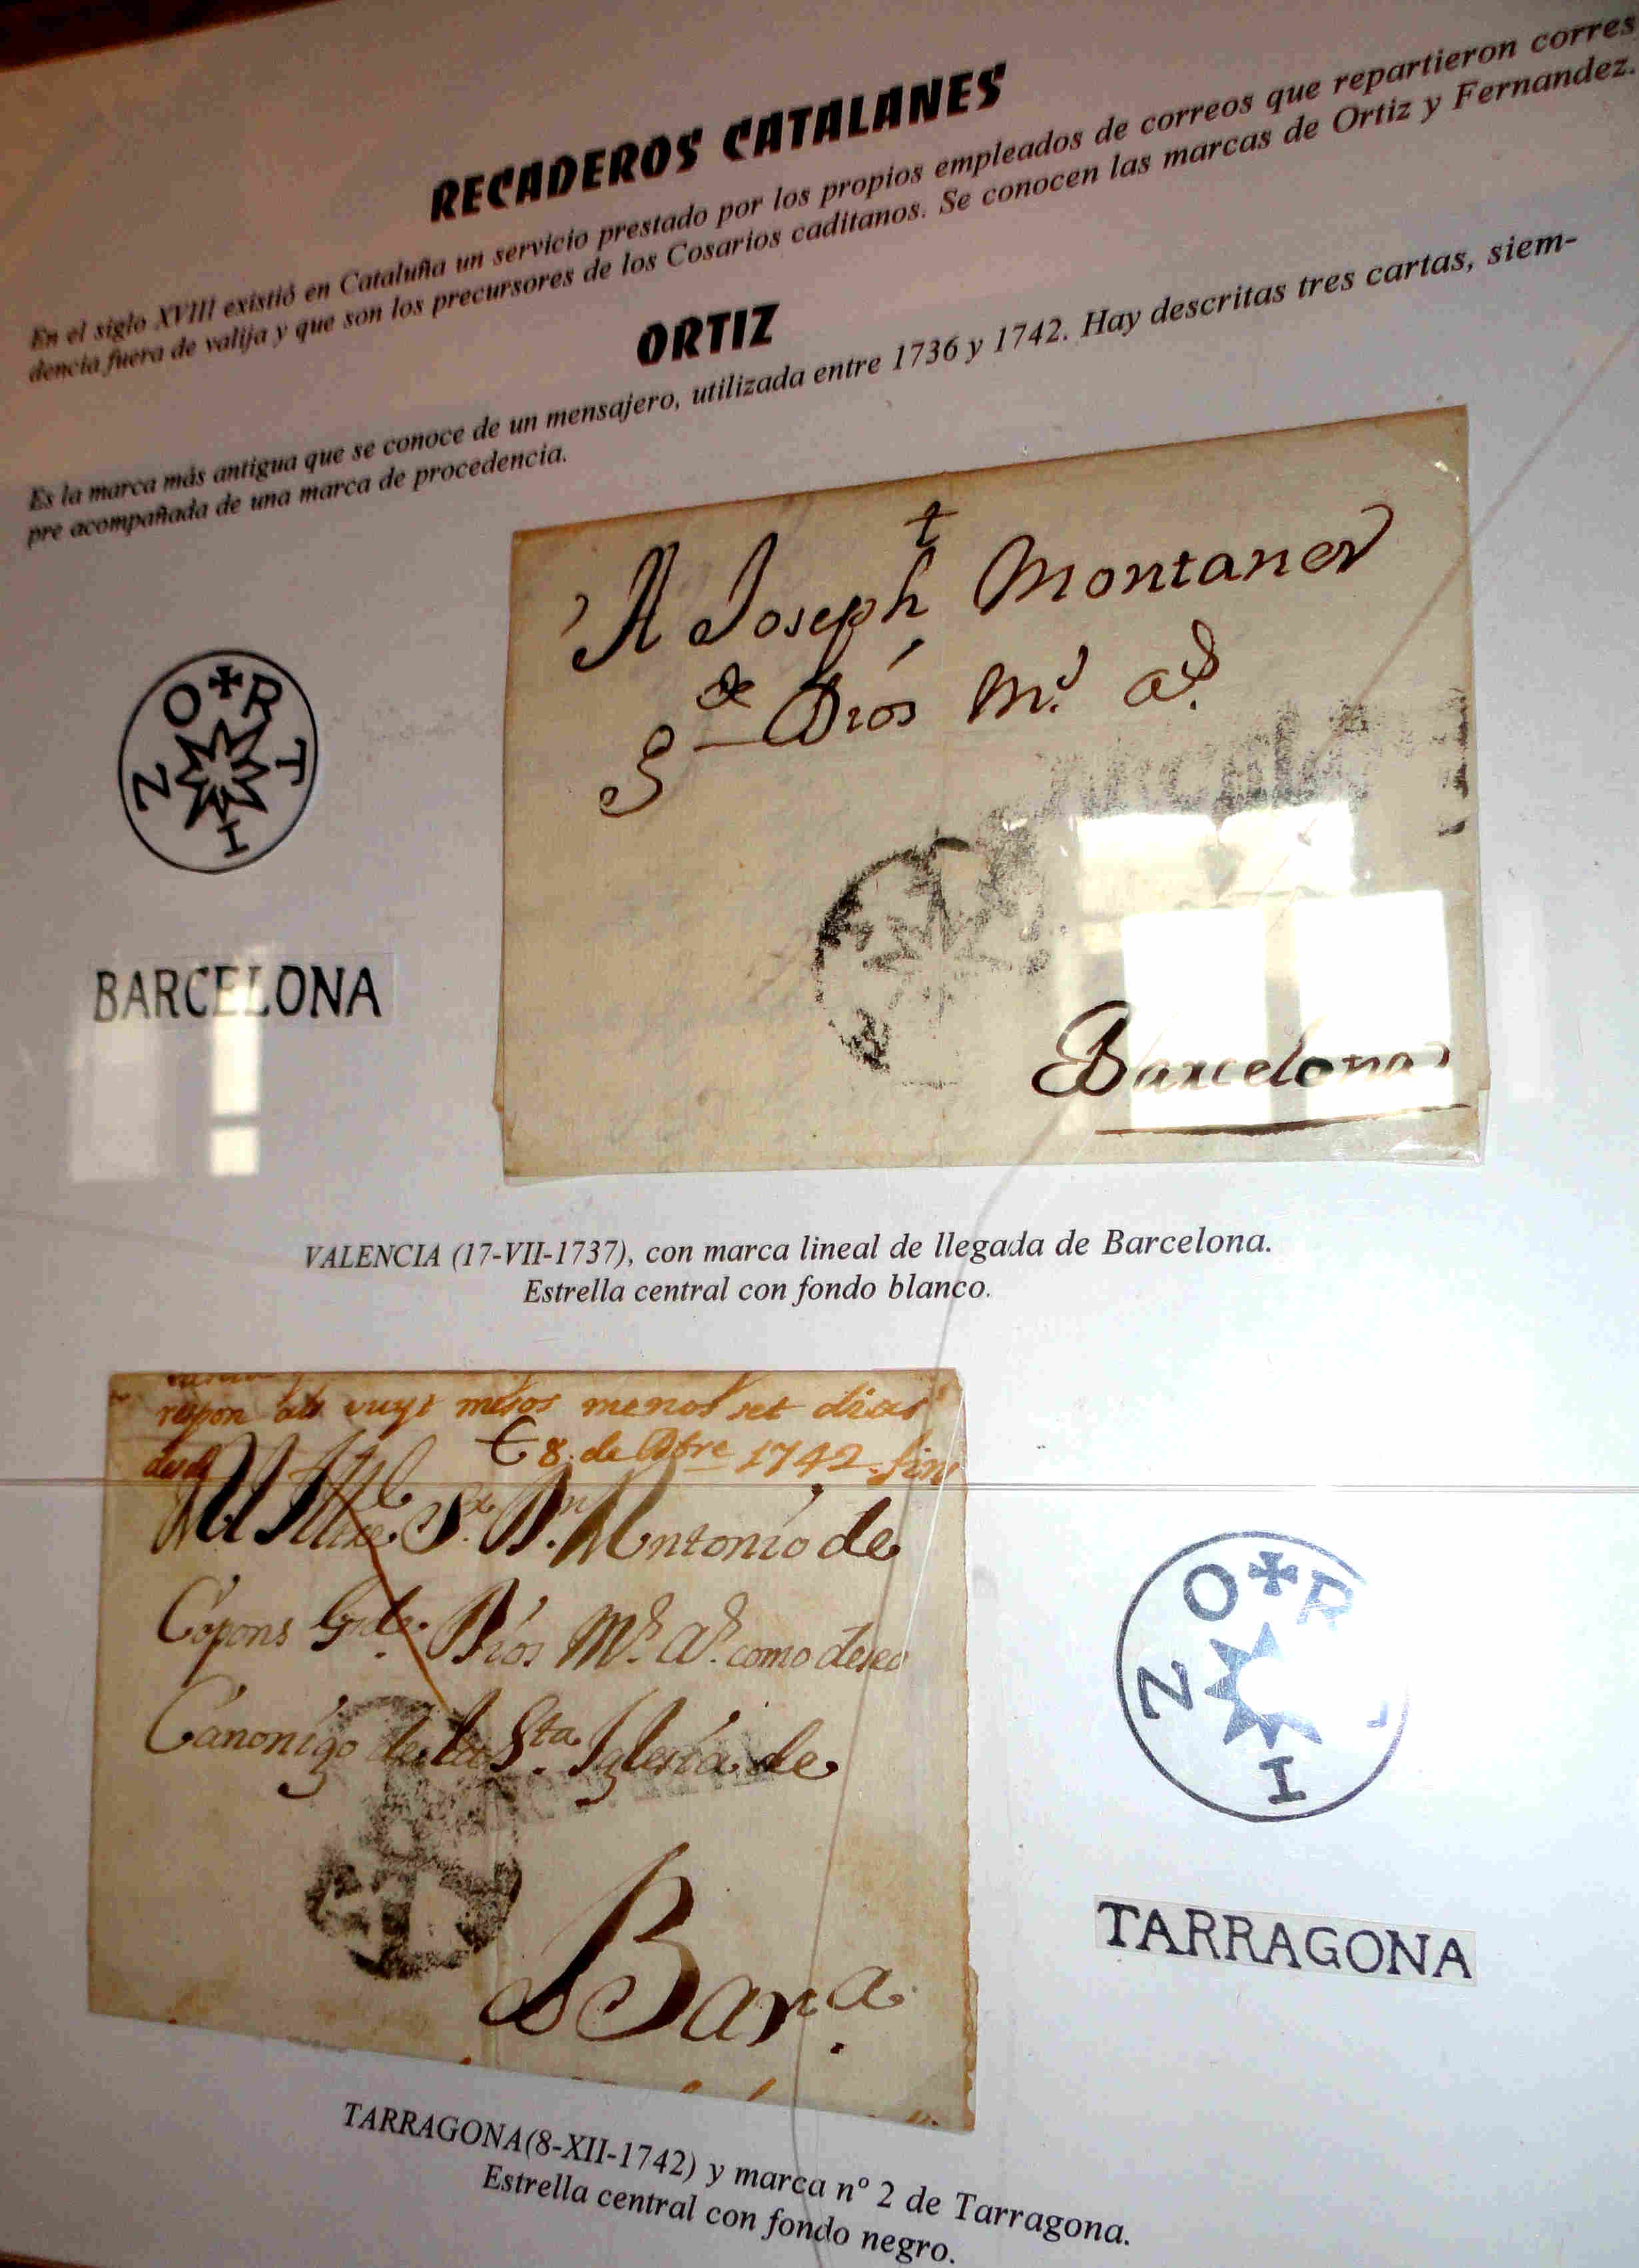 RECADEROS CATALANES
En el siglo XVIII existió en Cataluña un servicio prestado por los propios empleados de correos que repartieron corres
dencia fuera de valija y que son los precursores de los Cosarios caditanos. Se conocen las marcas de Ortiz y Fernandez.
ORTIZ
Es la marca más antigua que se conoce de un mensajero, utilizada entre 1736 y 1742. Hay descritas tres cartas, siem-
pre acompañada de una marca de procedencia.
O R T I Z
BARCELONA
A Joseph Montaner
g de Dios M.s a.s
Barcelona
VALENCIA (17-VII-1737), con marca lineal de llegada de Barcelona.
Estrella central con fondo blanco.
respon als vuyt mesos menos set dias
8. de Dbre 1742
Al Illre Sr. Dn. Antonio de
Copons Gde. Dios Ms. As. como deseo
Canonigo de la Sta. Iglesia de
Barna.
O R I Z
TARRAGONA
TARRAGONA(8-XII-1742) y marca nº 2 de Tarragona.
Estrella central con fondo negro.